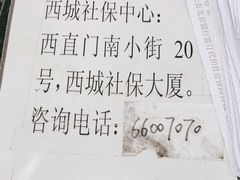 西城社保中心：
西直门南小街 20
号，西城社保大厦。
咨询电话：66007070